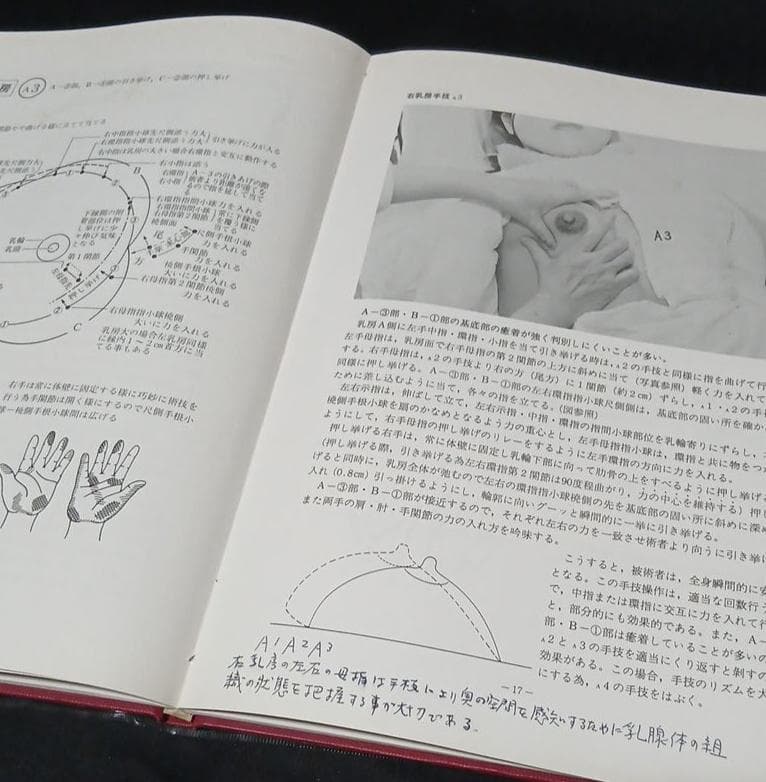 房 A3 A-③部, B-①部の引き挙げ, C-②部の押し挙げ
右中指根小球先尺側添う力大
右環指指小球先尺側添う力大 引き挙げに力が入る
右中指は乳房の大きい場合右環指と交互に動作する
右小指は添う
A-3の引きあげの際
術者より距離が遠くな
るので指を延して当て
る
右環指指間小球力を入れる
右小指指間小球
右母指第2関節 常に下縁側
を覆う様に
当てる
橈側面
尺側手根小球
力を入れる
手関節
力を入れる
橈側手根小球
大いに力を入れる
右母指第2関節橈側
力を入れる
右母指指小球橈側
大いに力を入れる
乳房大の場合左乳房同様
に縁内1〜2cm首方に当
てる事もある
乳輪
乳頭
第1関節
押し挙げ
尾
方
A
B
C
①
②
③
右手は常に体壁に固定する様に巧妙に術技を
行う為手関節は開く様にするので尺側手根小
球−橈側手根小球間は広げる
右乳房手技 A3
A3
A-③部・B-①部の基底部の癒着が強く判別しにくいことが多い。
乳房A側に左手中指・環指・小指を当て引き挙げる時は、A2の手技と同様に指を曲げて行
左手母指は、乳房面で右手母指の第2関節の上方に斜めに当て(写真参照)軽く力を入れて
する。右手母指は、A2の手技より右の方(尾方)に1関節(約2cm)ずらし、A1・A2の手
同様に押し挙げる。A-③部・B-①部の左右環指指小球尺側側は、基底部の固い所を確か
ために差し込むように当て、各々の指を立てる。(図参照)
左右示指は、伸ばして立て、左右示指・中指・環指の指間小球部位を乳輪寄りにずらし、
橈側手根小球を肩のかなめとなるよう力の重心とし、左手母指指小球は、環指と共に物をつか
ようにして、右手母指の押し挙げのリレーをするように左手環指の方向に力を入れる。
押し挙げる右手は、常に体壁に固定し乳輪下部に向って肋骨の上をすべるように押し挙げる
(押し挙げる際、引き挙げる為左右環指第2関節は90度程曲がり、力の中心を維持する)押し
げると同時に、乳房全体が弛むので左右の環指指小球橈側の先を基底部の固い所に斜めに深め
入れ(0.8cm)引っ掛けるようにし、輪郭に向いグーッと瞬間的に一挙に引き挙げる。
A-③部・B-①部が接近するので、それぞれ左右の力を一致させ術者より向うに引き挙げ
また両手の肩・肘・手関節の力の入れ方を吟味する。
こうすると、被術者は、全身瞬間的に安
となる。この手技操作は、適当な回数行う
で、中指または環指に交互に力を入れて行
と、部分的にも効果的である。また、A-
部・B-①部は癒着していることが多いの
A2とA3の手技を適当にくり返すと剥すの
効果がある。この場合、手技のリズムを大
にする為、A4の手技をはぶく。
−17−
A1 A2 A3
右乳房の左右の母指は手技により奥の空間を感知するために乳腺体の組
織の状態を把握する事が大切である。